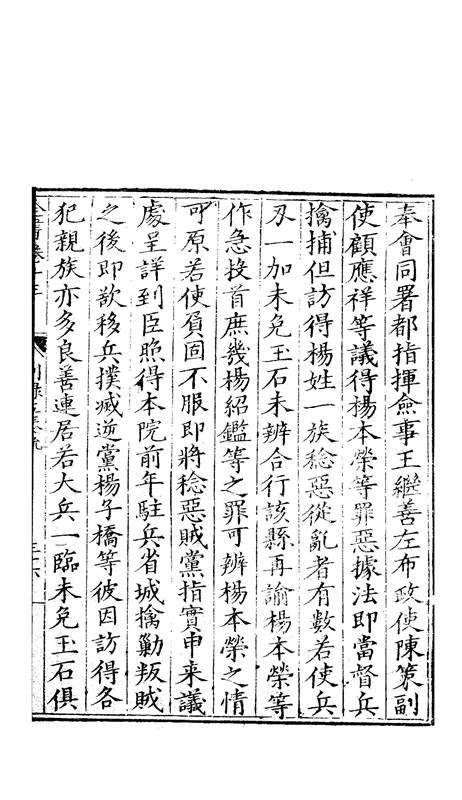 奉會同署都指揮僉事王繼善左布政使陳策副
使顧應祥等議得楊本榮等罪惡據法即當督兵
擒捕但訪得楊姓一族稔惡從亂者有數若使兵
刃一加未免玉石未辨合行該縣再諭楊本榮等
作急投首庶幾楊紹鑑等之罪可辨楊本榮之情
可原若使負固不服即將稔惡賊黨指實申来議
處呈詳到臣照得本院前年駐兵省城擒勦叛賊
之後即欲移兵撲滅逆黨楊子橋等彼因訪得各
犯親族亦多良善連居若大兵一臨未免玉石俱
全書卷十三
別録五
三六